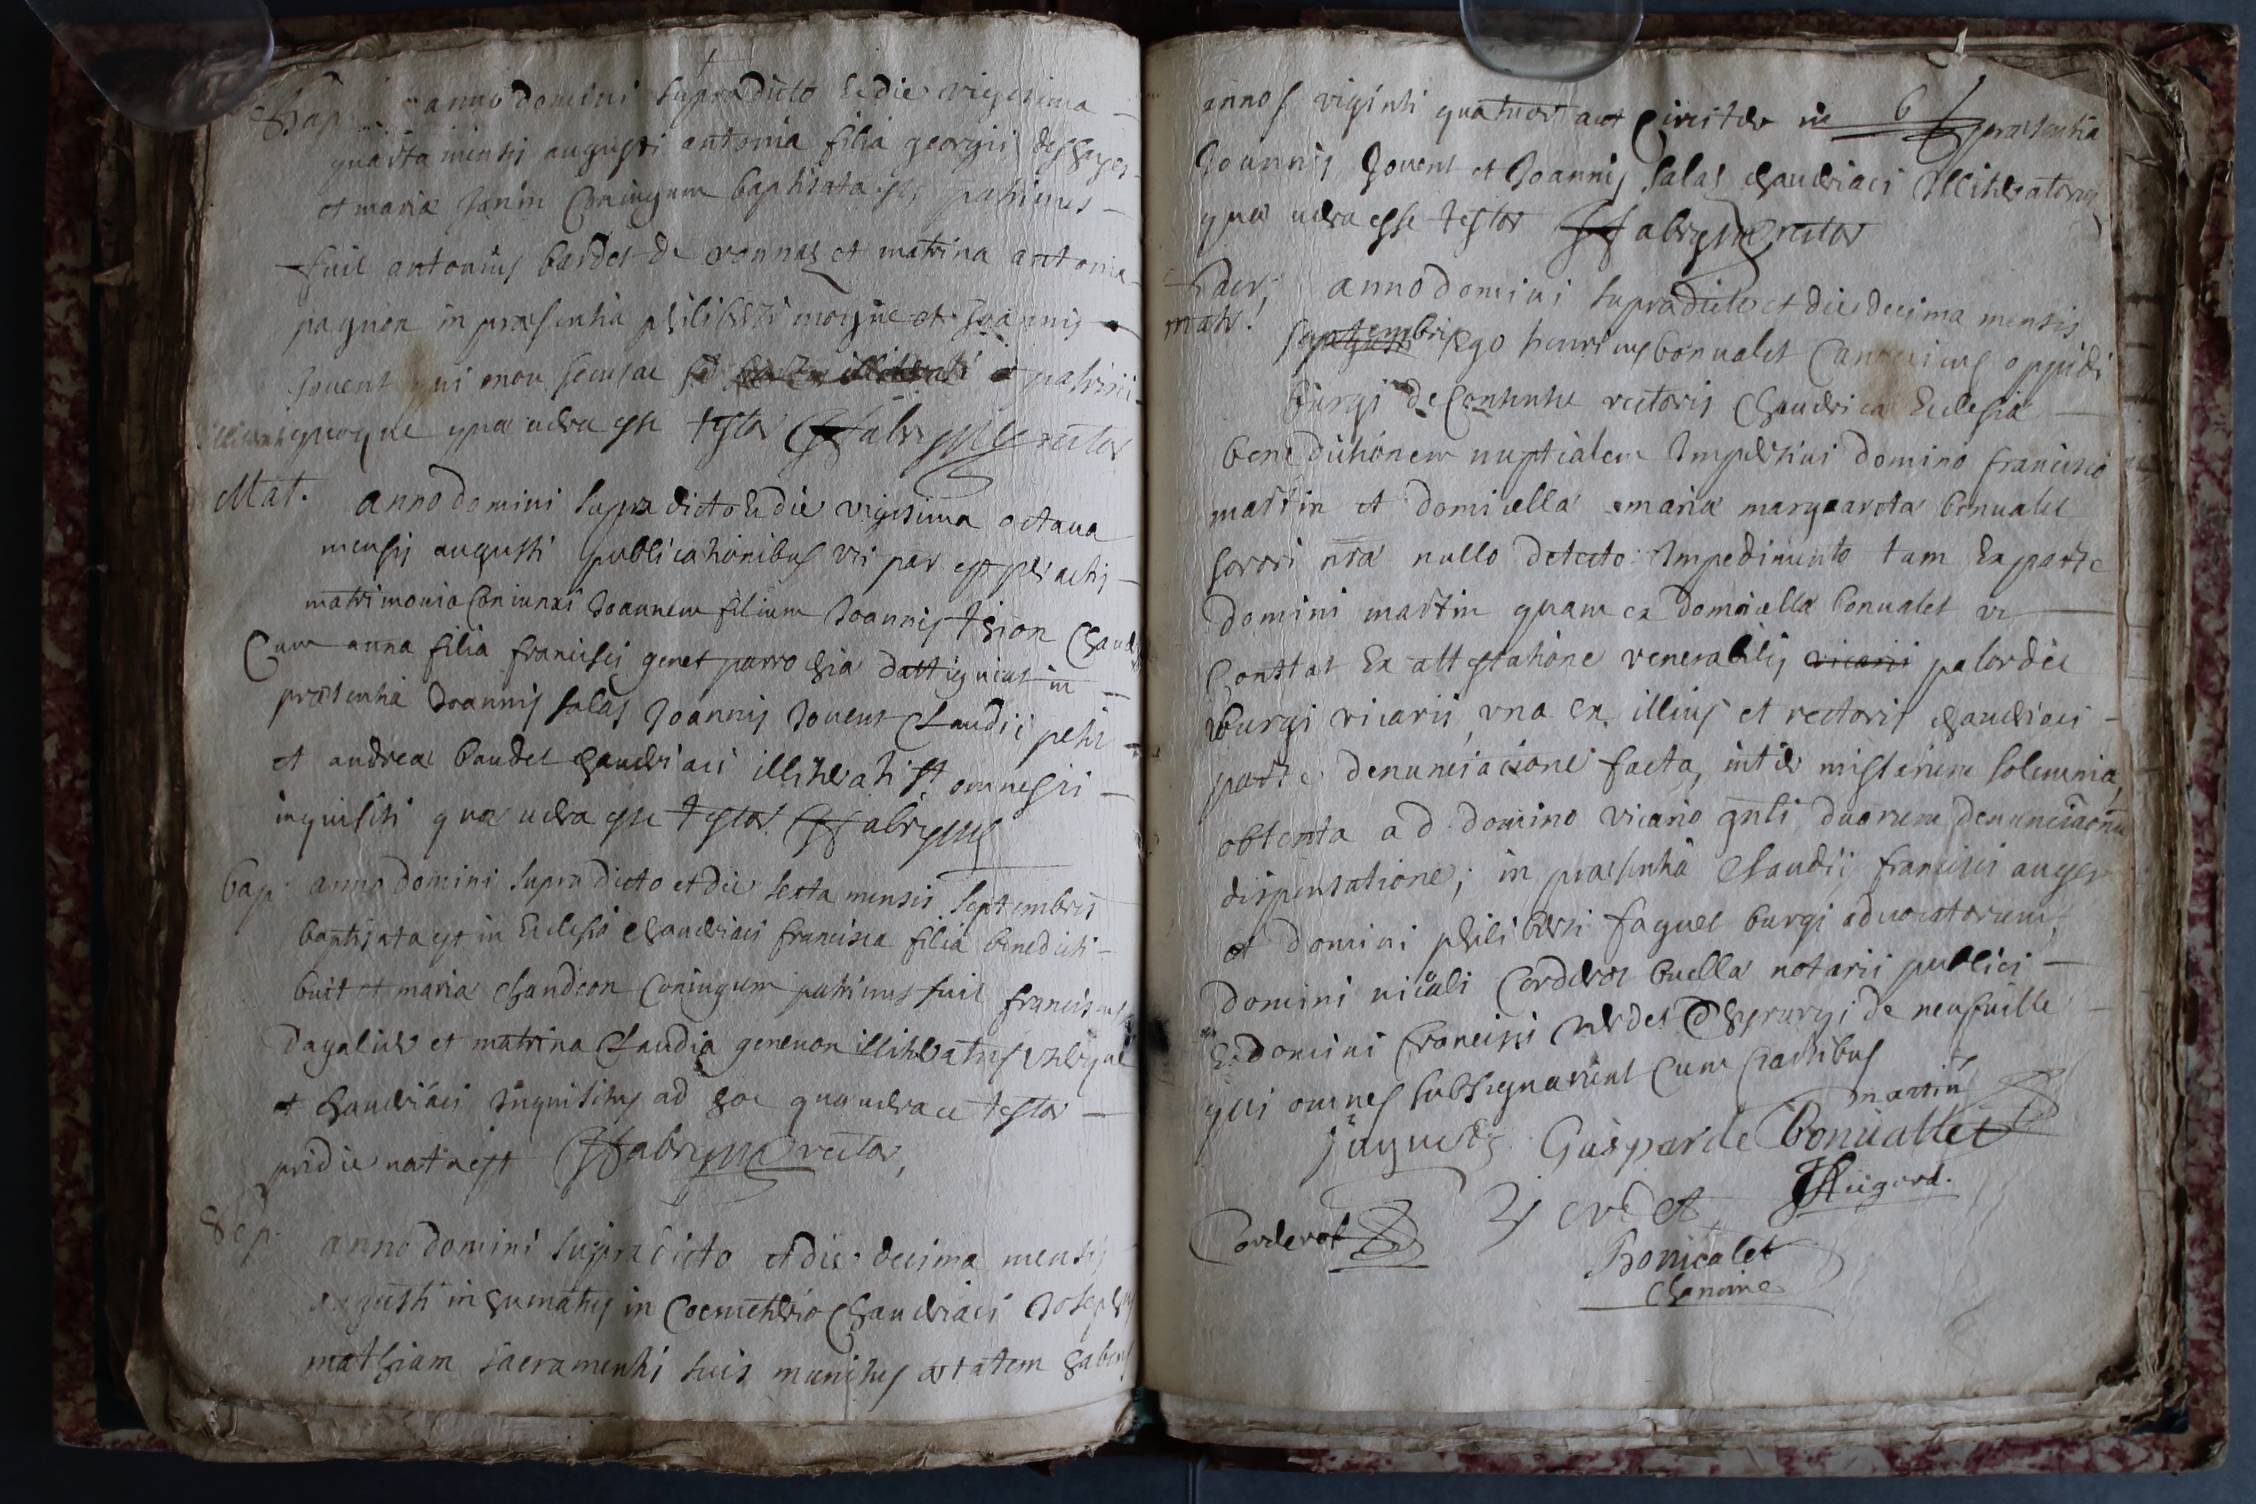 Bap. anno domini supradicto et die vigesima
quarta mensis augusti antonia filia georgii
et maria Janin Coniugum baptisata est, patrinus
fuit antonius bardet de ronnas et matrina antonia
pagnon in præsentia philiberti moyne et Joannis
Jouent qui non secusae et patrini
quoque quæ uera esse testor rector
Mat. anno domini supradicto et die vigesima octaua
mensis augusti publicationibus uti par est peractis
matrimonio Coniunxi Joannem filium Joannis thion
Cum anna filia francisci genet parrochia dattignias in
præsentia Joannis salas Joannis Jouent Claudii petit
et andreæ baudet chaudriaci illitterati st omnes
inquisiti quæ uera esse testor
bap. anno domini supradicto et die sexta mensis septembris
baptisata est in Ecclesia chaudriaci francisca filia benedicti
buit et maria chandeon Coniugum patrinus fuit franciscus
dagalier et matrina Claudia geneuon illitteratus uterque
et chaudriaci inquisitus ad hoc quæ uera ee testor
pridie nata est rector,
Sep. anno domini supradicto et die decima mensis
augusti inhumatus in Coemeterio chaudriaci Joseph
mathiam sacramentis suis munitus ætatem habens
6
annos viginti quatuor aut Circiter in præsentia
Joannis Jouent et Joannis salas chaudriaci Illitteratorum
quæ uera esse testor rector
matr! anno domini supradicto et die decima mensis
septembris Ego henricus bonualet Canonicus oppidi
burgi de Consensu rectoris Chaudriaci Ecclesiæ
benedictionem nuptialem Impertiui domino francisco
martin et domicella maria margaareta bonualet
sorori nra nullo detecto Impedimento tam Ex parte
domini martin quam ex domicella bonualet ut
Constat Ex attestatione venerabilis vicarii palordet
Burgi vicarii una ex illius et rectoris chaudriaci
parte denunciacione facta, inter missarum solemnia,
obtenta a d domino vicario gnli duarum denunciaonu
dispensatione; in præsentia Claudii francisci auger
et domini philiberti faguet burgi aduocatorum,
domini nicoli Corderot buellæ notarii publici
Et domini francisci verdet Chyrurgi de neufuille
qui omnes subsignarunt Cum partibus
martin
Gasparde Bonuallet
Corderot
Bonualet
Chanoine